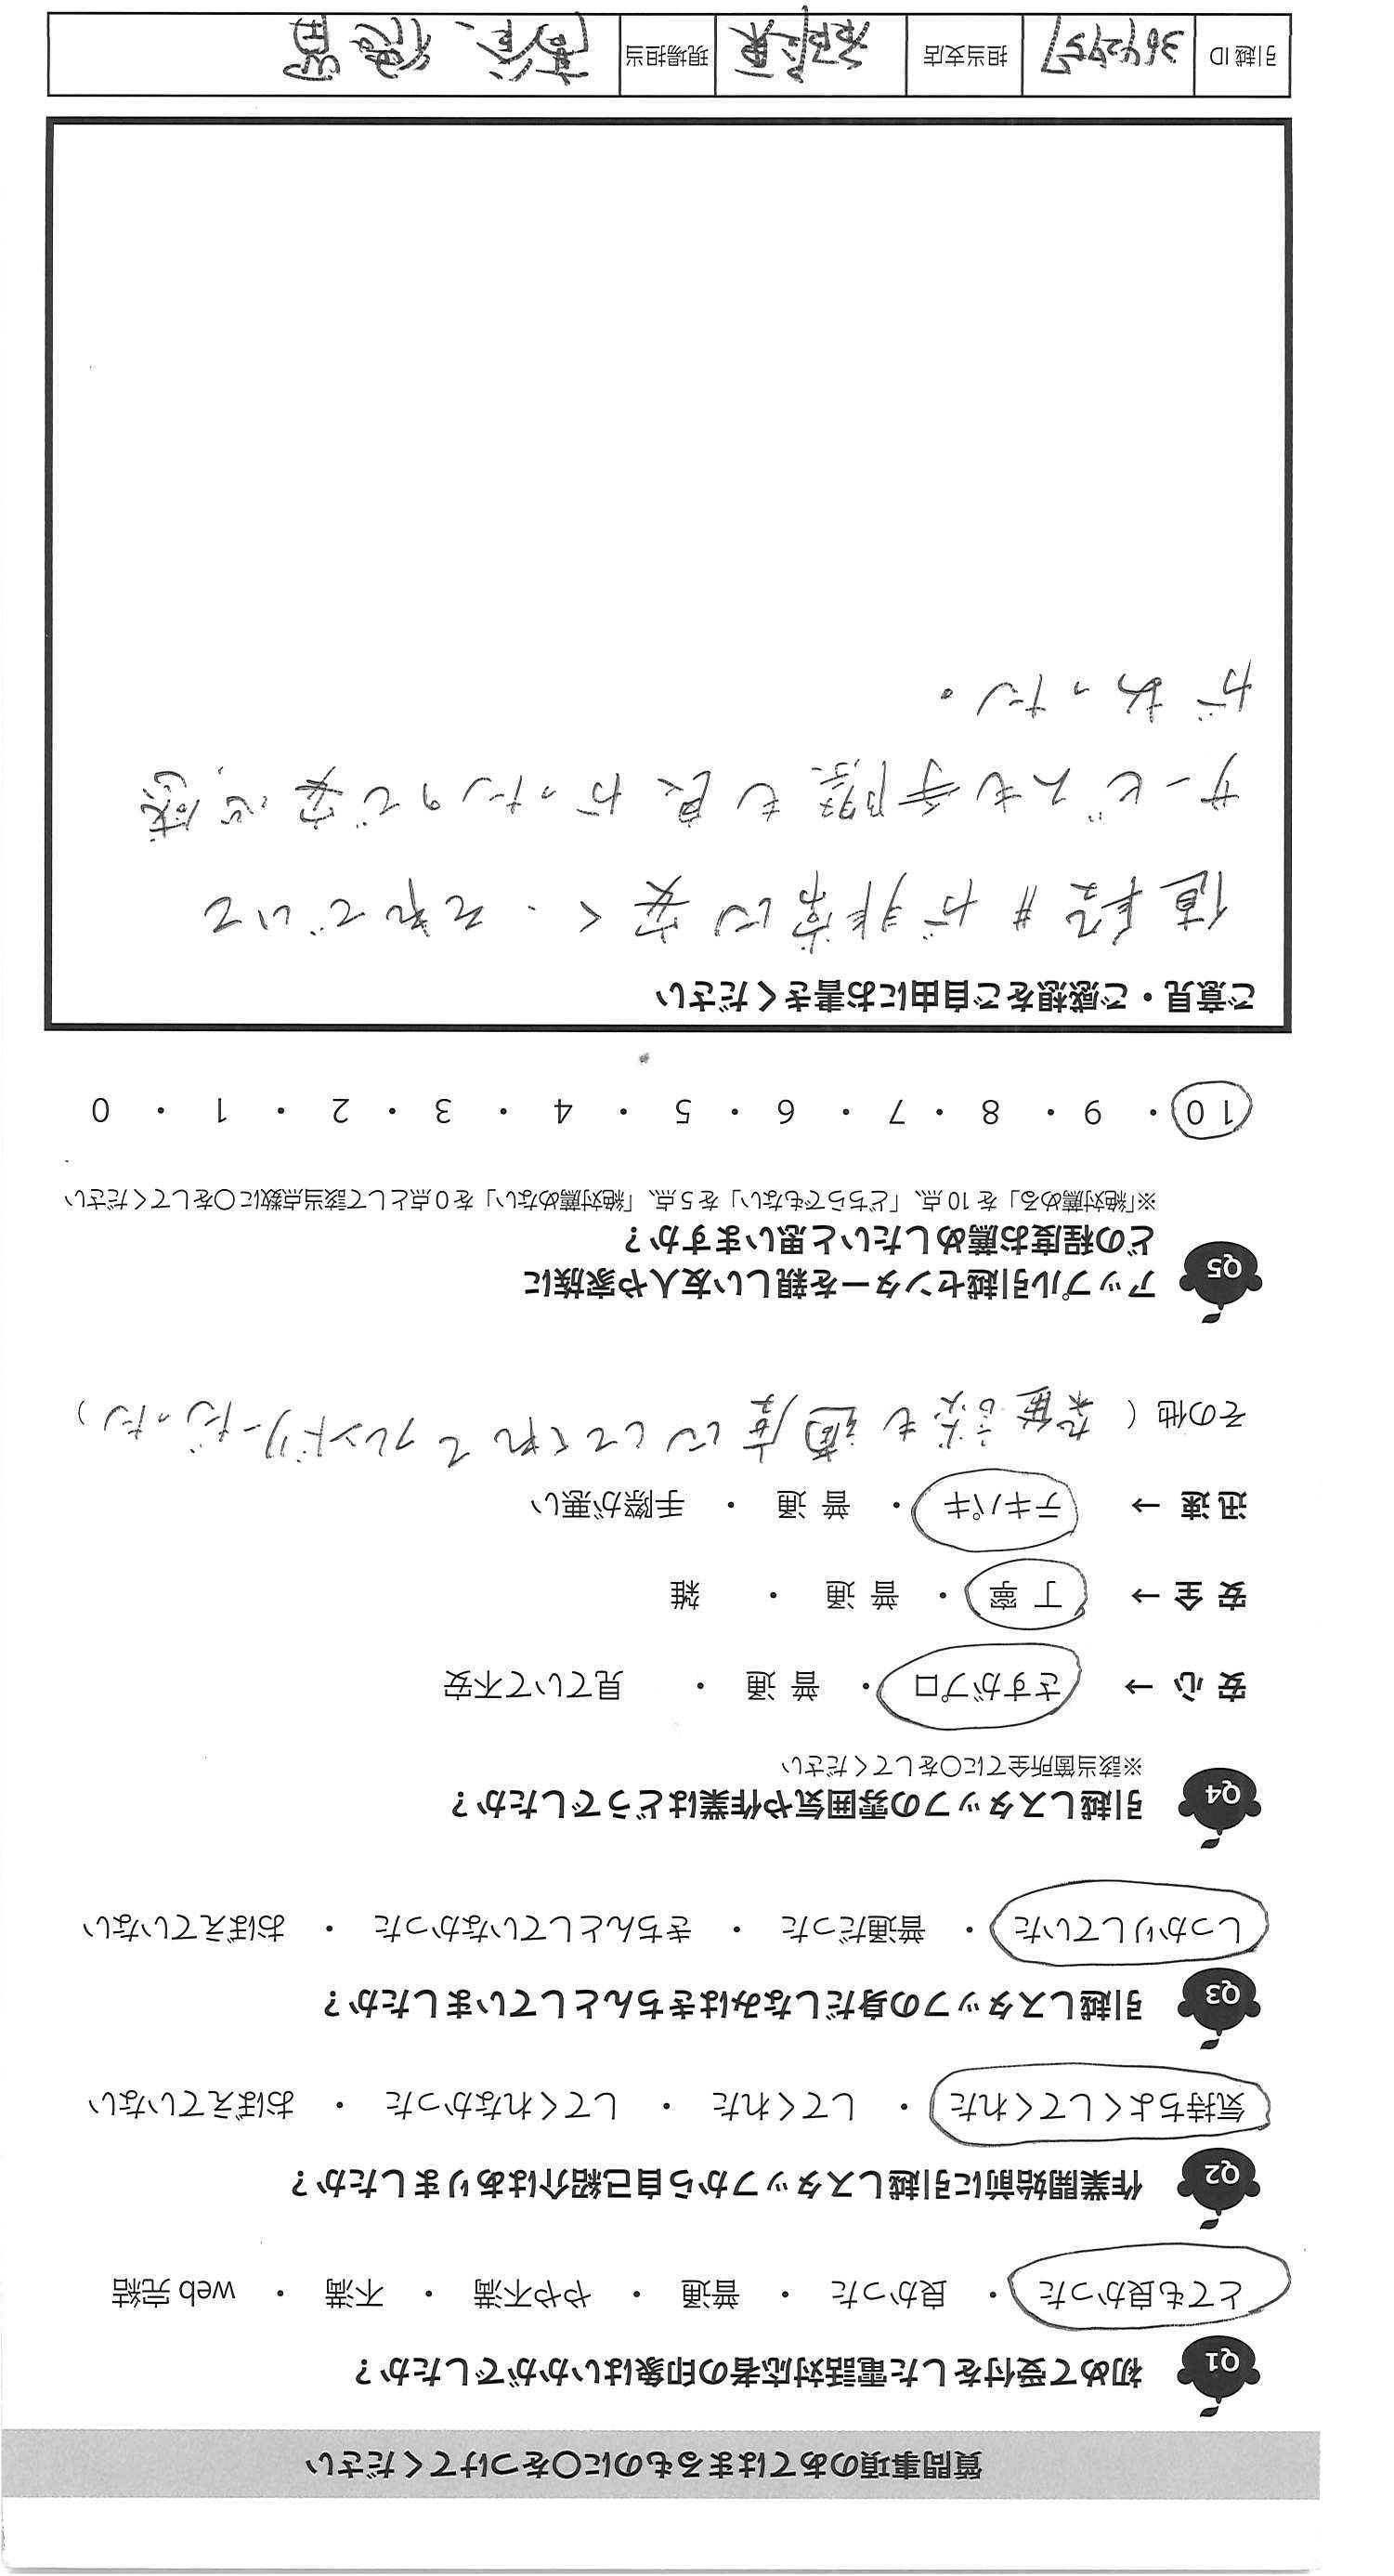 質問事項のあてはまるものに○をつけてください
Q1 初めて受付をした電話対応者の印象はいかがでしたか？
とても良かった ・ 良かった ・ 普通 ・ やや不満 ・ 不満 ・ web 完結
Q2 作業開始前に引越しスタッフから自己紹介はありましたか？
気持ちよくしてくれた ・ してくれた ・ してくれなかった ・ おぼえていない
Q3 引越しスタッフの身だしなみはきちんとしていましたか？
しっかりしていた ・ 普通だった ・ きちんとしていなかった ・ おぼえていない
Q4 引越しスタッフの雰囲気や作業はどうでしたか？
※該当箇所全てに○をしてください
安 心 → さすがプロ ・ 普 通 ・ 見ていて不安
安 全 → 丁 寧 ・ 普 通 ・ 雑
迅 速 → テキパキ ・ 普 通 ・ 手際が悪い
その他（ 談も適度にしてくれてフレンドリーだった ）
Q5 アップル引越センターを親しい友人や家族に
どの程度お薦めしたいと思いますか？
※「絶対薦める」を 10 点、「どちらでもない」を 5 点、「絶対薦めない」を 0 点として該当点数に○をしてください
10 ・ 9 ・ 8 ・ 7 ・ 6 ・ 5 ・ 4 ・ 3 ・ 2 ・ 1 ・ 0
ご意見・ご感想をご自由にお書きください
値段が非常に安く、それでいて
サービスも手際も良かったので安心感
があった。
引越 ID 3642457 担当支店 現場担当